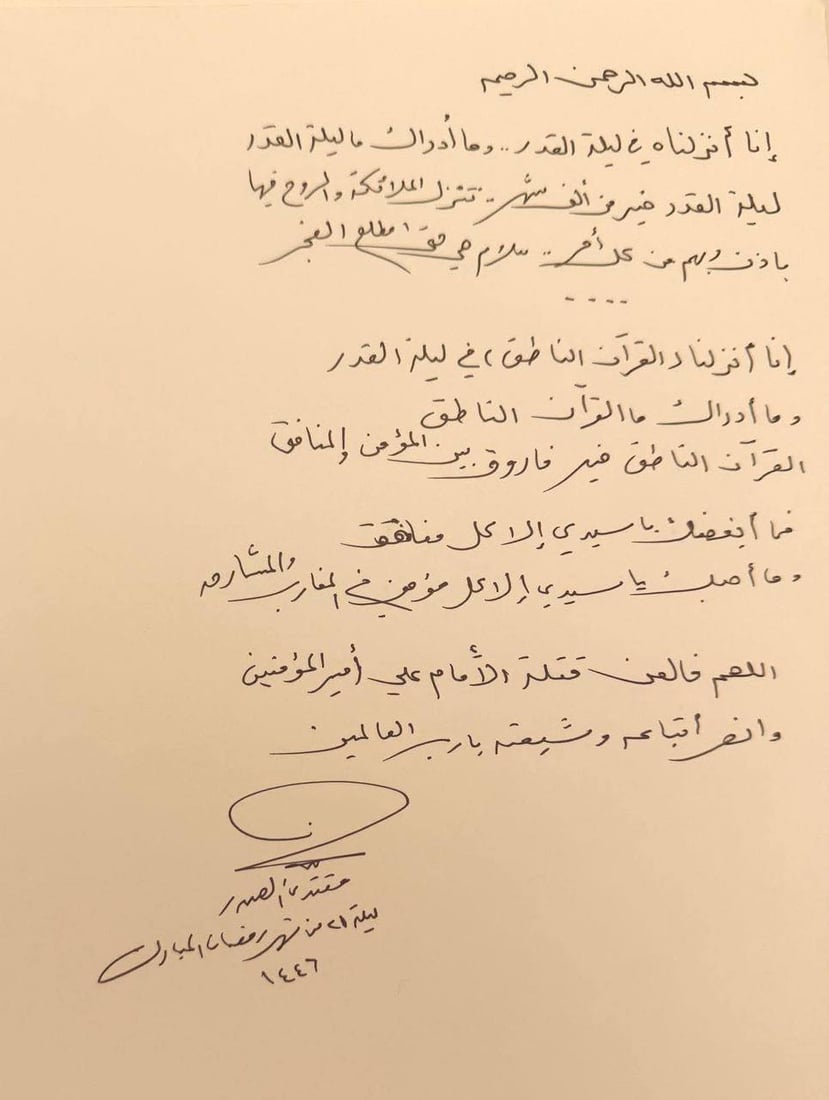 بسم الله الرحمن الرحيم
إنا أنزلناه في ليلة القدر .. وما أدراك ما ليلة القدر
ليلة القدر خير من ألف شهر .. تتنزل الملائكة والروح فيها
باذن ربهم من كل أمر .. سلام هي حتى مطلع الفجر
....
إنا أنزلنا (القرآن الناطق) في ليلة القدر
وما أدراك ما القرآن الناطق
القرآن الناطق خير فاروق بين المؤمن والمنافق
فما أبغضك يا سيدي إلا كل منافق
وما أحبك يا سيدي إلا كل مؤمن في المغارب والمشارق
اللهم فالعن قتلة الأمام علي أمير المؤمنين
وانصر أتباعه وشيعته يا رب العالمين
مقتدى الصدر
ليلة ٢١ من شهر رمضان المبارك
١٤٤٦